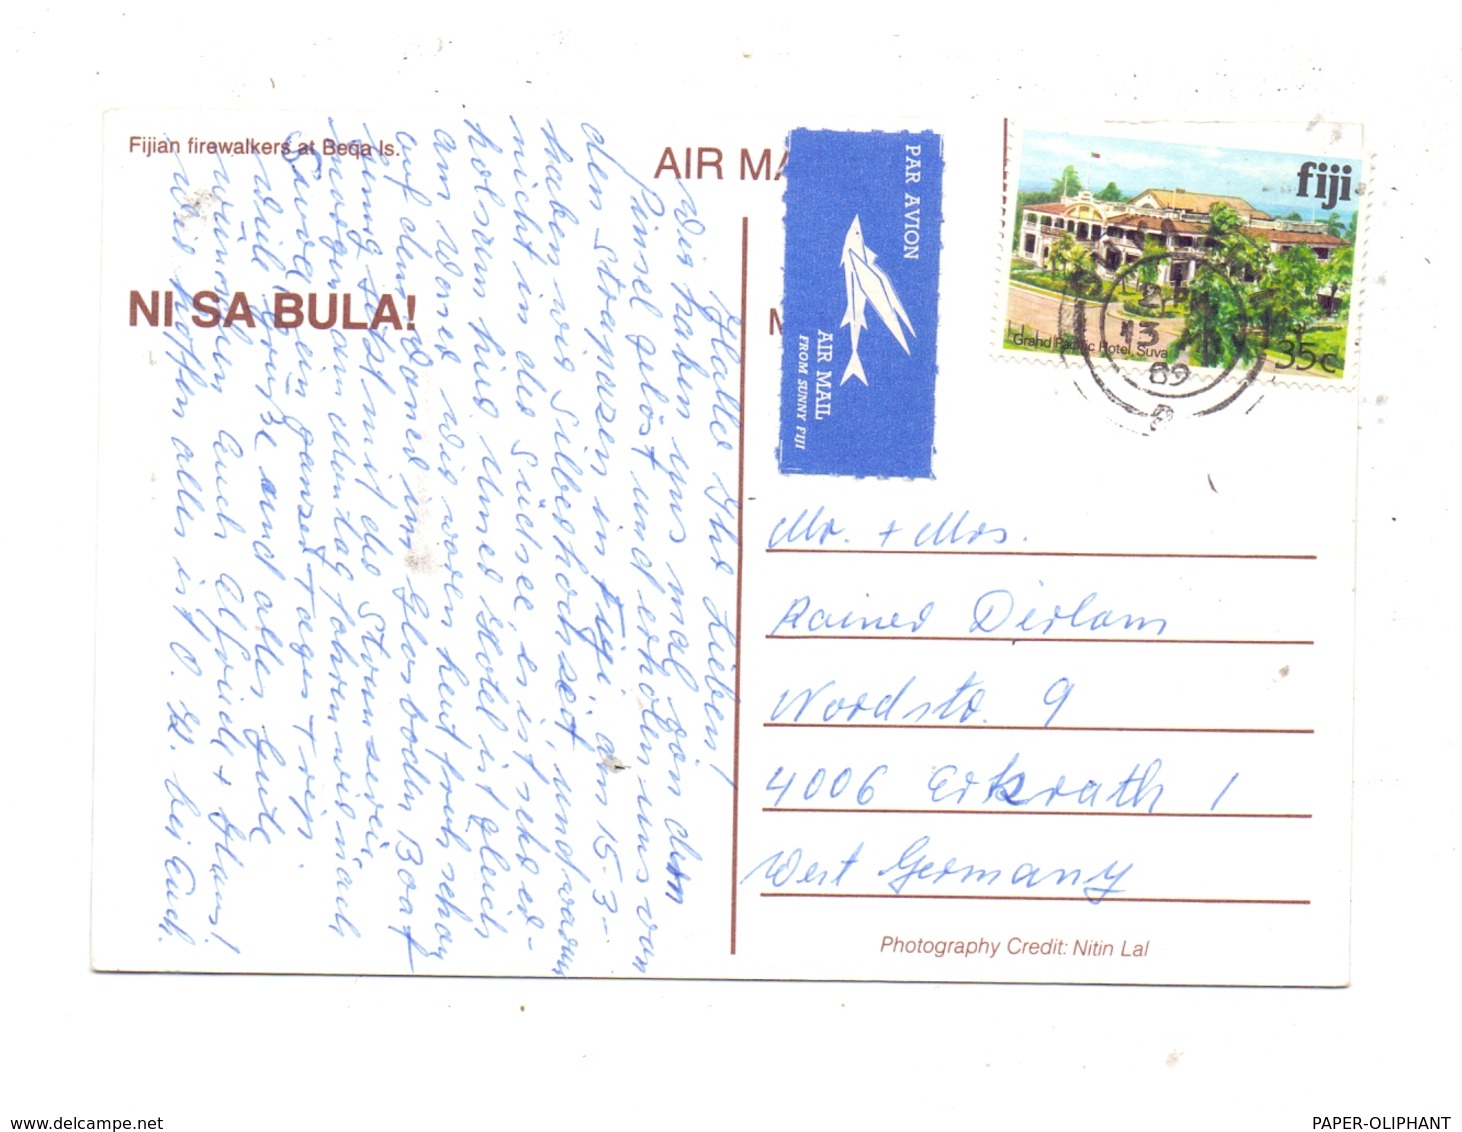 Fijian firewalkers at Beqa Is.
AIR MA
NI SA BULA!
M
PAR AVION
AIR MAIL
FROM SUNNY FIJI
fiji
Grand Pacific Hotel, Suva
35c
13
89
Hallo Ihr Lieben!
Wir haben uns mal von dem
Pinsel gelöst und erholen uns von
den Strapazen in Fiji. Am 15-3-
haben wir Silberhochzeit, und waren
nicht in der Südsee es ist sehr er-
holsam hier Unser Hotel ist gleich
am Wasser wir waren heut früh schon
auf dem Wasser im Glasboden Boat
jetzt mit
morgen am Montag fahren wir nach
ein ganzer Tages Trip.
Viele Grüße und alles Gute
wünschen Euch Elfried + Hans!
Wir hoffen alles ist O. K. bei Euch.
Mr. + Mrs.
Rainer Dirlam
Nordstr. 9
4006 Erkrath 1
West Germany
Photography Credit: Nitin Lal
www.delcampe.net
PAPER-OLIPHANT